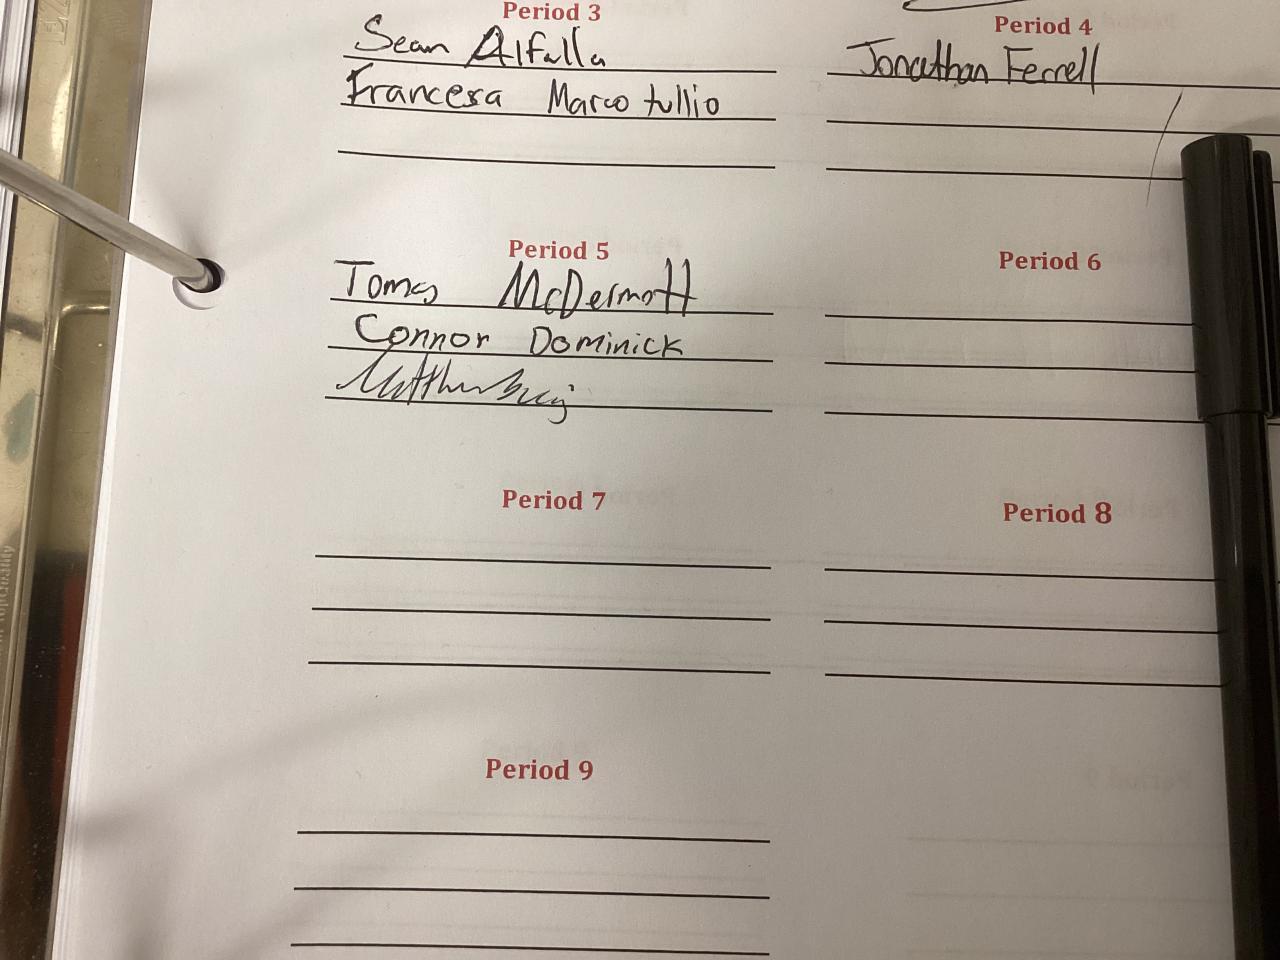 Period 3
Sean Alfalla
Francesa Marco tullio
Period 4
Jonathan Ferrell
Period 5
Tomas McDermott
Connor Dominick
Matthew
Period 6
Period 7
Period 8
Period 9